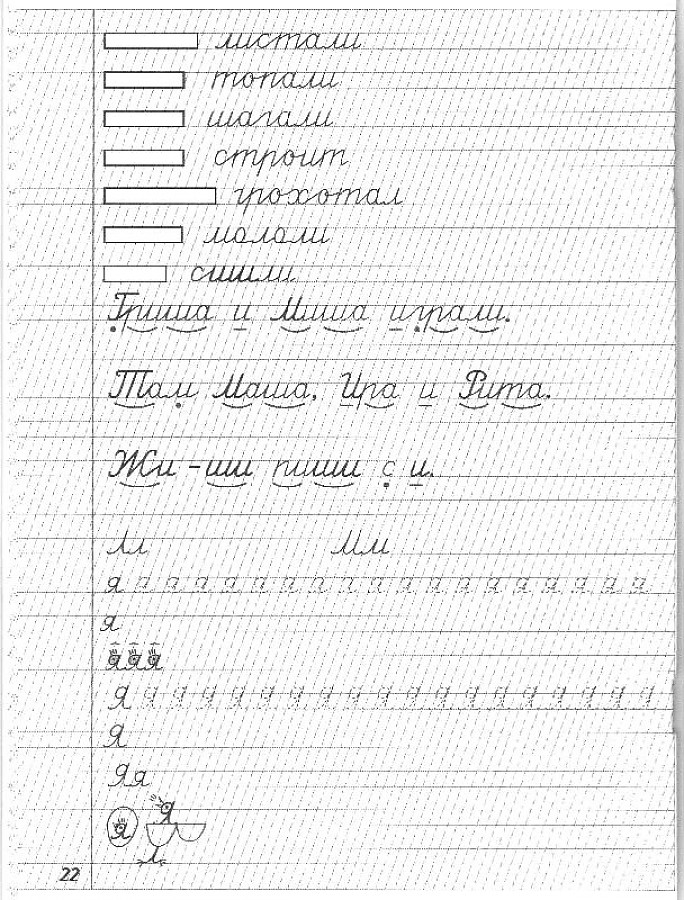 листали
топали
шагали
строит
грохотал
мололи
сшили
Гриша и Миша играли.
Там Маша, Ира и Рита.
Жи - ши пиши с и.
Лл Мм
я я я я я я я я я я я я я я я я я я я
я
я я я
Я Я Я Я Я Я Я Я Я Я Я Я Я Я Я Я Я Я Я
Я
Яя
я Я
л
22